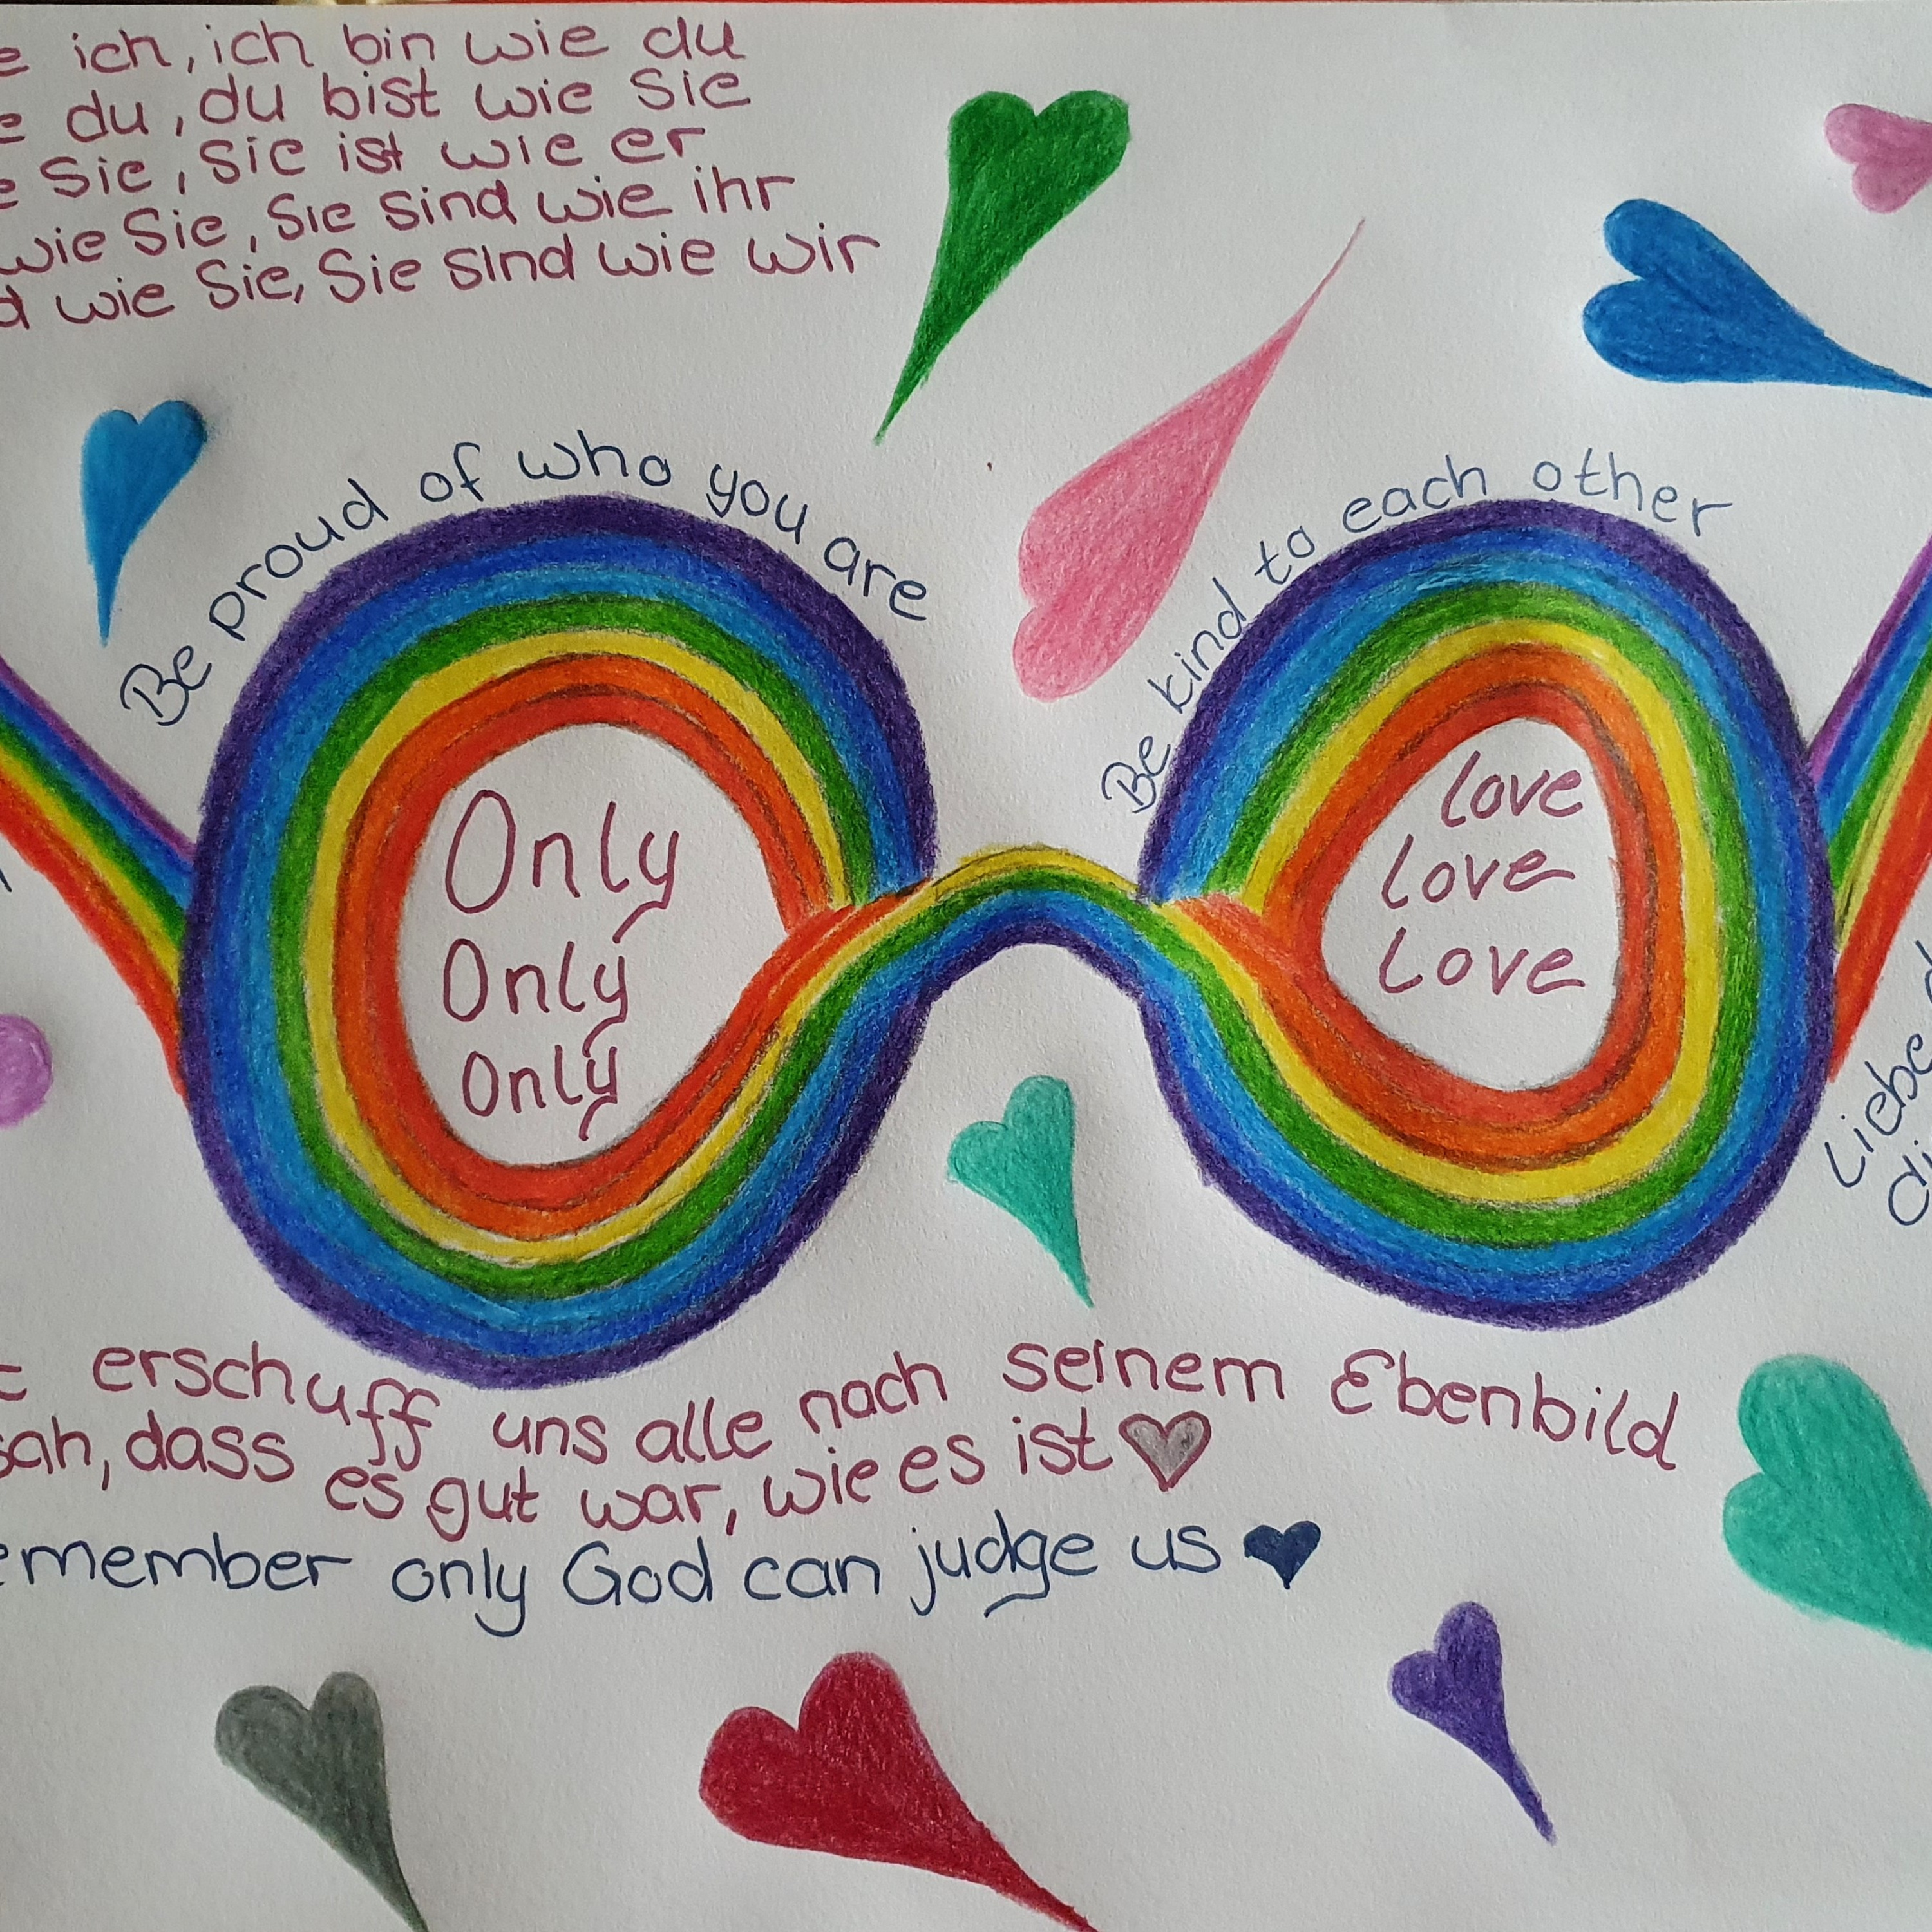 ich, ich bin wie du
du, du bist wie Sie
Sie, Sie ist wie er
wie Sie, Sie sind wie ihr
wie Sie, Sie sind wie wir
Be proud of who you are
Be kind to each other
Only
Only
Only
love
Love
Love
Liebe
erschuff uns alle nach seinem Ebenbild
sah, dass es gut war, wie es ist
emember only God can judge us